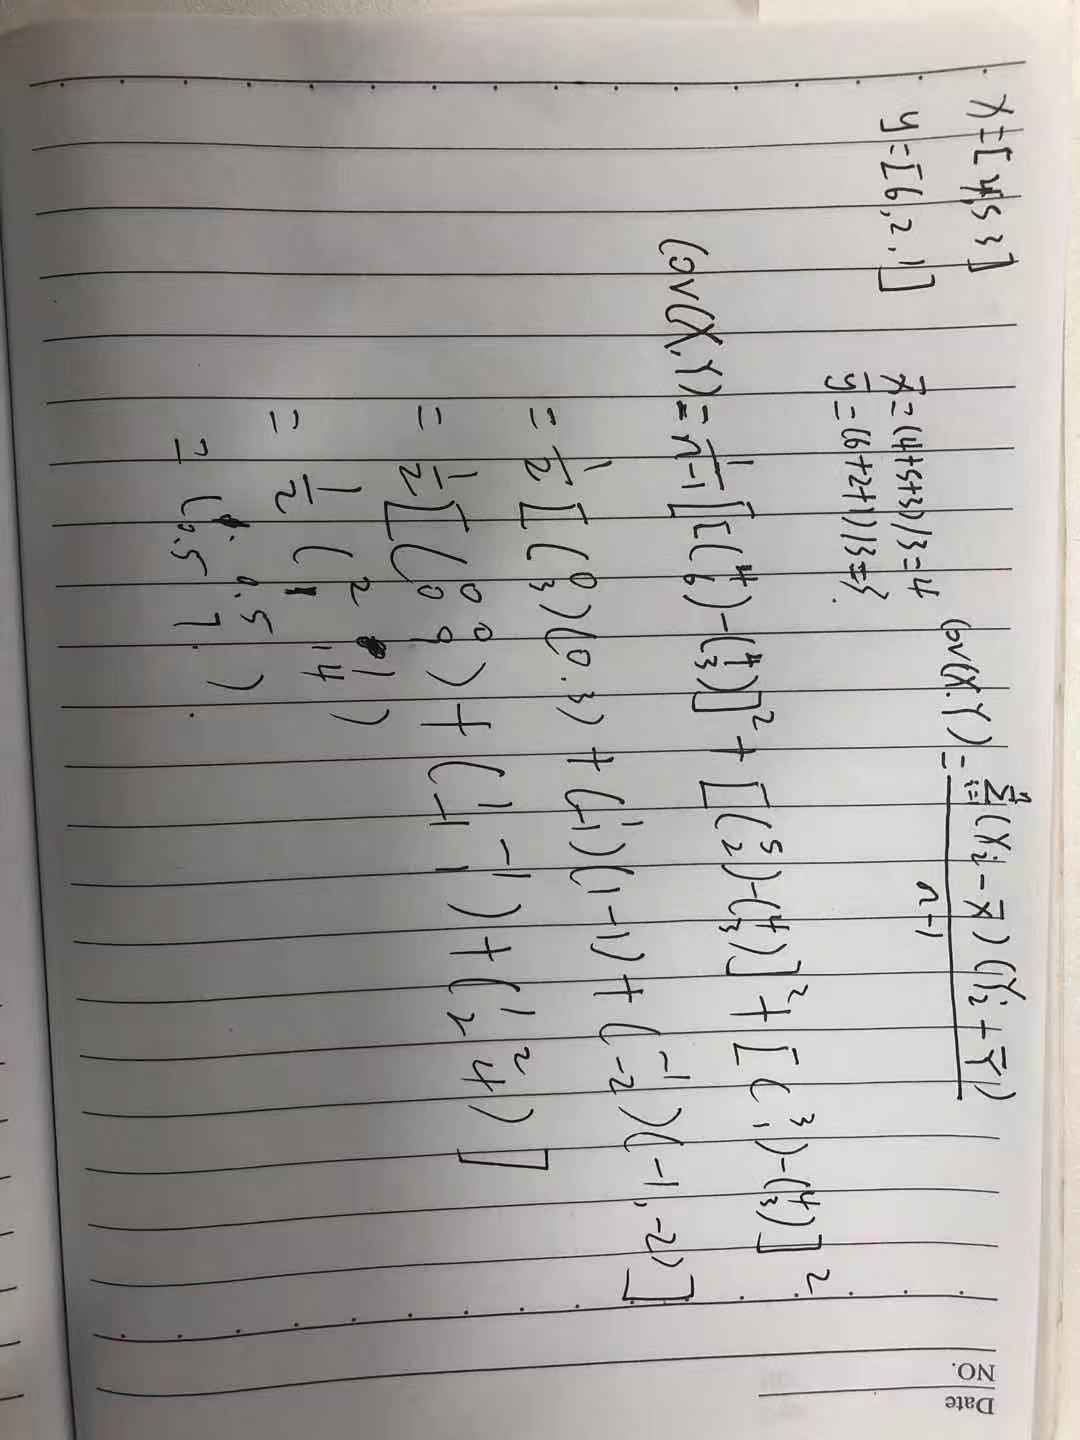 x=[4,5 3]
y=[6,2,1]
x̄=(4+5+3)/3=4
ȳ=(6+2+1)/3=3.
Cov(X.Y)=∑ⁿᵢ₌₁(Xi-X̄)(Yi+Ȳ)
n-1
Cov(X.Y)=1/n-1[[(4 6)-(4 3)]²+[(5 2)-(4 3)]²+[(3 1)-(4 3)]²
=1/2[(0 3)(0.3)+(1 -1)(1-1)+(-1 -2)(-1,-2)]
=1/2[(0 0
0 9)+(1 -1
-1 1)+(1 2
2 4)]
=1/2(2 1
1 14)
=(1. 0.5
0.5 7.)
NO.
Date